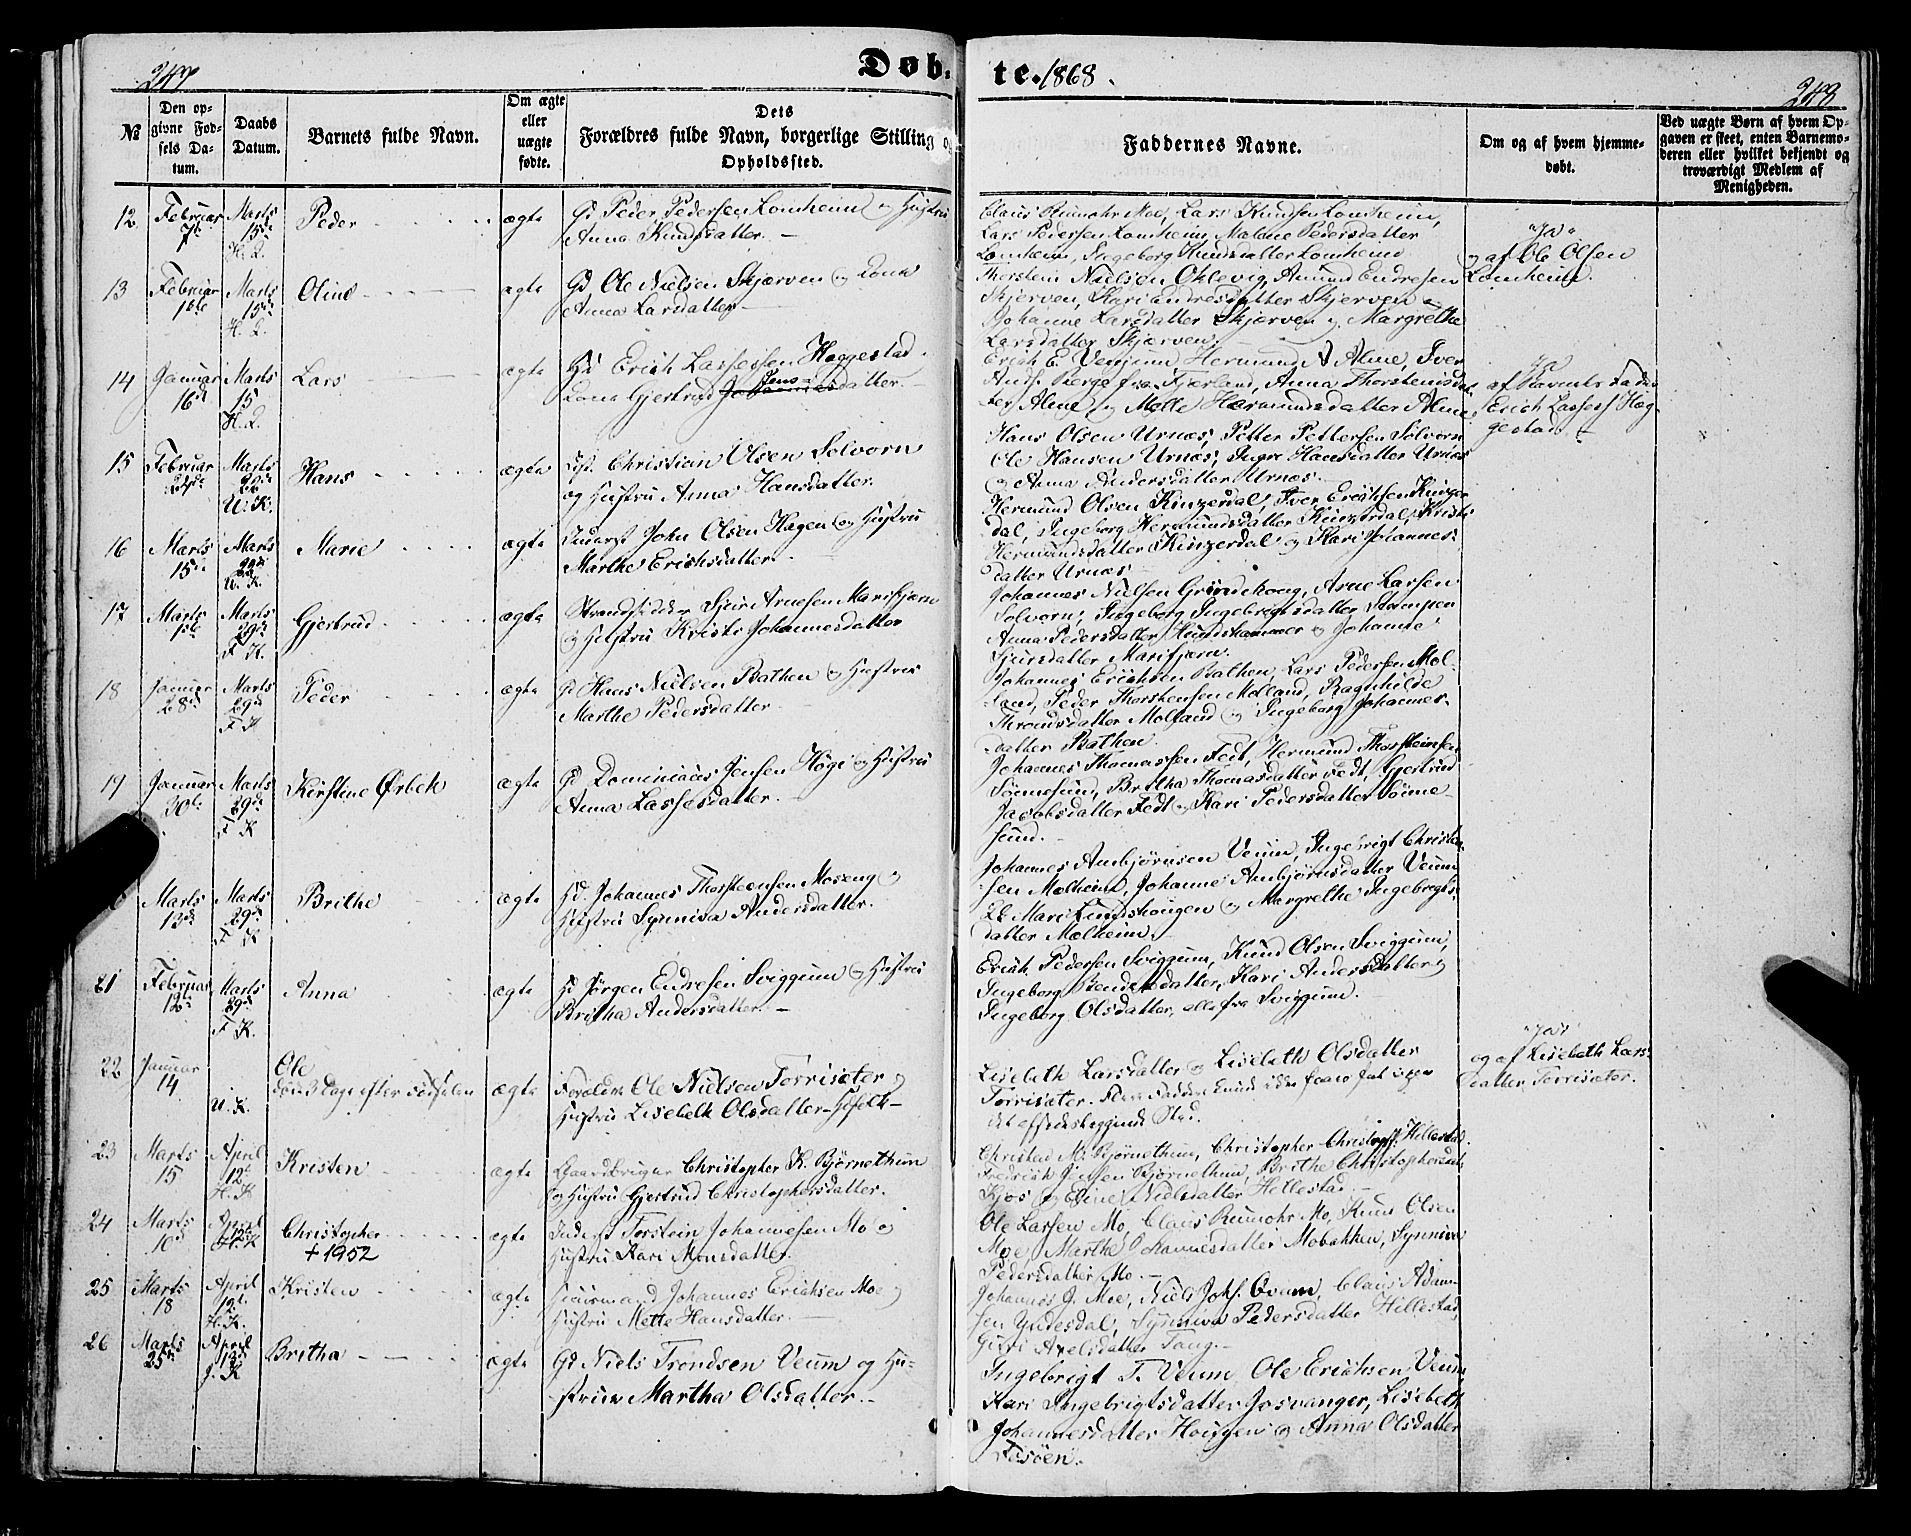 247
Døb-
te. 1868.
248
№
Den op-
givne Fød-
sels Da-
tum.
Daabs
Datum.
Barnets fulde Navn.
Om ægte
eller
uægte
fødte.
Dets
Forældres fulde Navn, borgerlige Stilling og
Opholdssted.
Faddernes Navne.
Om og af hvem hjemme-
døbt.
Ved uægte Børn af hvem Op-
gaven er skeet, enten Barnemo-
deren eller hvilket bekjendt og
troværdigt Medlem af
Menigheden.
12 Februar Marts Peder ægte Gd Peder Pedersen Lomheim og Hustru
7de 15de Anna Knudsdatter.
H. K.
Claus Rumohr Moe, Lars Knudsen Lomheim,
Lars Pedersen Lomheim, Malene Pedersdatter
Lomheim, Ingeborg Knudsdatter Lomheim
"Ja"
og af Ole Olsen
Lomheim.
13 Februar Marts Oline ægte Gd Ole Nielsen Skjerven og Kone
16de 15de Anna Larsdatter
H. K.
Thorstein Nielsen Ottevig, Amund Endresen
Skjerven, Kari Endresdatter Skjerven
Johanne Larsdatter Skjerven og Margrethe
Larsdatter Skjerven.
14 Januar Marts Lars ægte Hd Erich Lassessen Haggestad
16de 15 Kone Gjertrud Jensdatter.
H. K.
Erich E. Venjum, Hermund A Alme, Iver
Berge fra Fjerland, Anna Thorsteinsdat-
ter Alme og Mette Hermundsdatter Alme
Ja
af Barnets Fader
Erich Lasses: Hag-
gestad.
15 Februar Marts Hans ægte Christian Olsen Solvorn
22de og Hustru Anna Hansdatter.
U. K.
Hans Olsen Urnæs, Petter Pettersen Solvorn
Ole Hansen Urnæs, Hansdatter Urnæs
og Anna Andersdatter Urnæs.
16 Marts Marts Marie ægte Inderst John Olsen Hagen og Hustru
15de 22de Marthe Erichsdatter.
U. K.
Hermund Olsen Kinzerdal, Iver Erichsen Kinzer-
dal, Ingeborg Hermundsdatter Kinzerdal, Kristi
Hermundsdatter Kinzerdal og Kari Johannes-
datter Urnæs
17 Marts Marts Gjertrud ægte Strandsidder Sjur Arnesen Marifjæren
1ste 29de og Hustru Kristi Johannesdatter
F. K.
Johannes Nielsen Grindehoug, Arne Larsen
Solvorn, Ingeborg Ingebrigtsdatter Stampen
Anna Pedersdatter Hundshammer og Johanne
Sjursdatter Marifjæren.
18 Januar Marts Peder ægte Gd Hans Nielsen Bathen og Hustru
28de 29de Marthe Pedersdatter
F. K.
Johannes Erichsen Bathen, Lars Pedersen Mol-
land, Peder Thorstensen Molland, Ragnhilde
Throndsdatter Molland og Ingeborg Johannes-
datter Bathen.
19 Januar Marts Kirstine Ørbek ægte Gd Dominicus Jensen Høgi og Hustru
30te 29de Anna Lassesdatter.
F. K.
Johannes Thomassen Fedt, Hermund Thorsteinsen
Sønnesun, Britha Thomasdatter Fedt, Gjertrud
Jacobsdatter Fedt og Kari Pedersdatter Sønne-
sund.
Marts Marts Brithe ægte Hd. Johannes Thorsteensen Moseng og
13de 29de Hustru Synniva Andersdatter.
F. K.
Johannes Anbjørnsen Veum, Ingebrigt Christen-
sen Molheim, Johanne Anbjørnsdatter Veum
Mari Lindshougen og Margrethe Ingebrigts-
datter Molheim.
21 Februar Marts Anna ægte Hd Jørgen Endresen Sviggum og Hustru
12te 29de Britha Andersdatter.
F. K.
Erich Pedersen Sviggum, Knud Olsen Sviggum,
Ingeborg Bendiksdatter, Kari Andersdatter og
Ingeborg Olsdatter, alle fra Sviggum.
22 Januar Ole ægte Forældre Ole Nielsen Torrisæter og
14 døde 3 Dage efter Fødselen Hustru Lisebeth Olsdatter
U. K.
Lisebeth Larsdatter og Lisebeth Olsdatter
Torrisæter.
det affidesliggende Sted.
"Ja"
og af Lisebeth Lars-
datter Torrisæter.
23 Marts April Kristen ægte Gaardbruger Christopher K. Bjørnethun
15 12te og Hustru Gjertrud Christophersdatter.
H. K.
Christad M. Bjørnethun, Christopher Christoph: Hillestad
Fredrich Jensen Bjørnethun, Brithe Christophersdat.
Kjos og Eline Nielsdatter Hillestad.
24 Marts April Christopher ægte Inderst Torstein Johannesen Mo og
10de 12te † 1952 Hustru Kari Monsdatter.
H. K
Ole Larsen Mo, Claus Rumohr Mo, Knud Olsen
Moe, Marthe Johannesdatter Mobakken, Synniva
Pedersdatter Mo.
25 Marts April Kristen ægte Huusmand Johannes Erichsen Moe og
18 12te Hustru Mette Hansdatter.
H. K.
Johannes J. Moe, Niels Johs. Qvam, Claus Adam-
sen Yndesdal, Synneva Pedersdatter Hillestad,
Guri Axelsdatter Tang.
26 Marts April Britha ægte Gd Niels Trondsen Veum og Hu-
25de 13de struw Martha Olsdatter.
J. K
Ingebrigt T. Veum, Ole Erichsen Veum
Kari Ingebrigtsdatter Josvanger, Lisebeth
Johannesdatter Hougen og Anna Olsdatter
Tosøen.